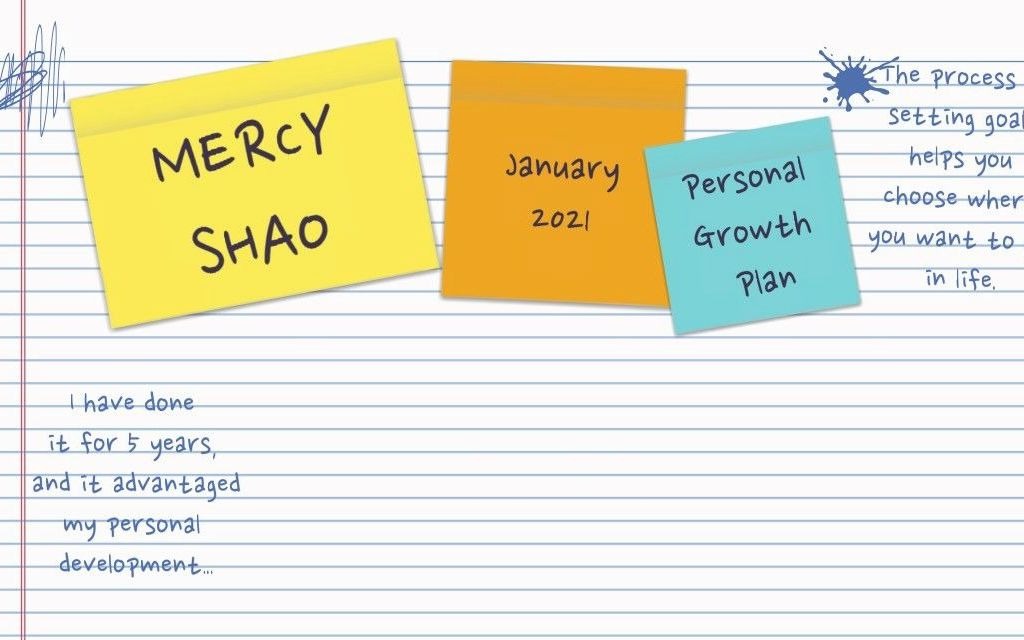 MERCY
SHAO
January
2021
Personal
Growth
Plan
The process
setting goal
helps you
choose wher
you want to
in life.
I have done
it for 5 years,
and it advantaged
my personal
development...